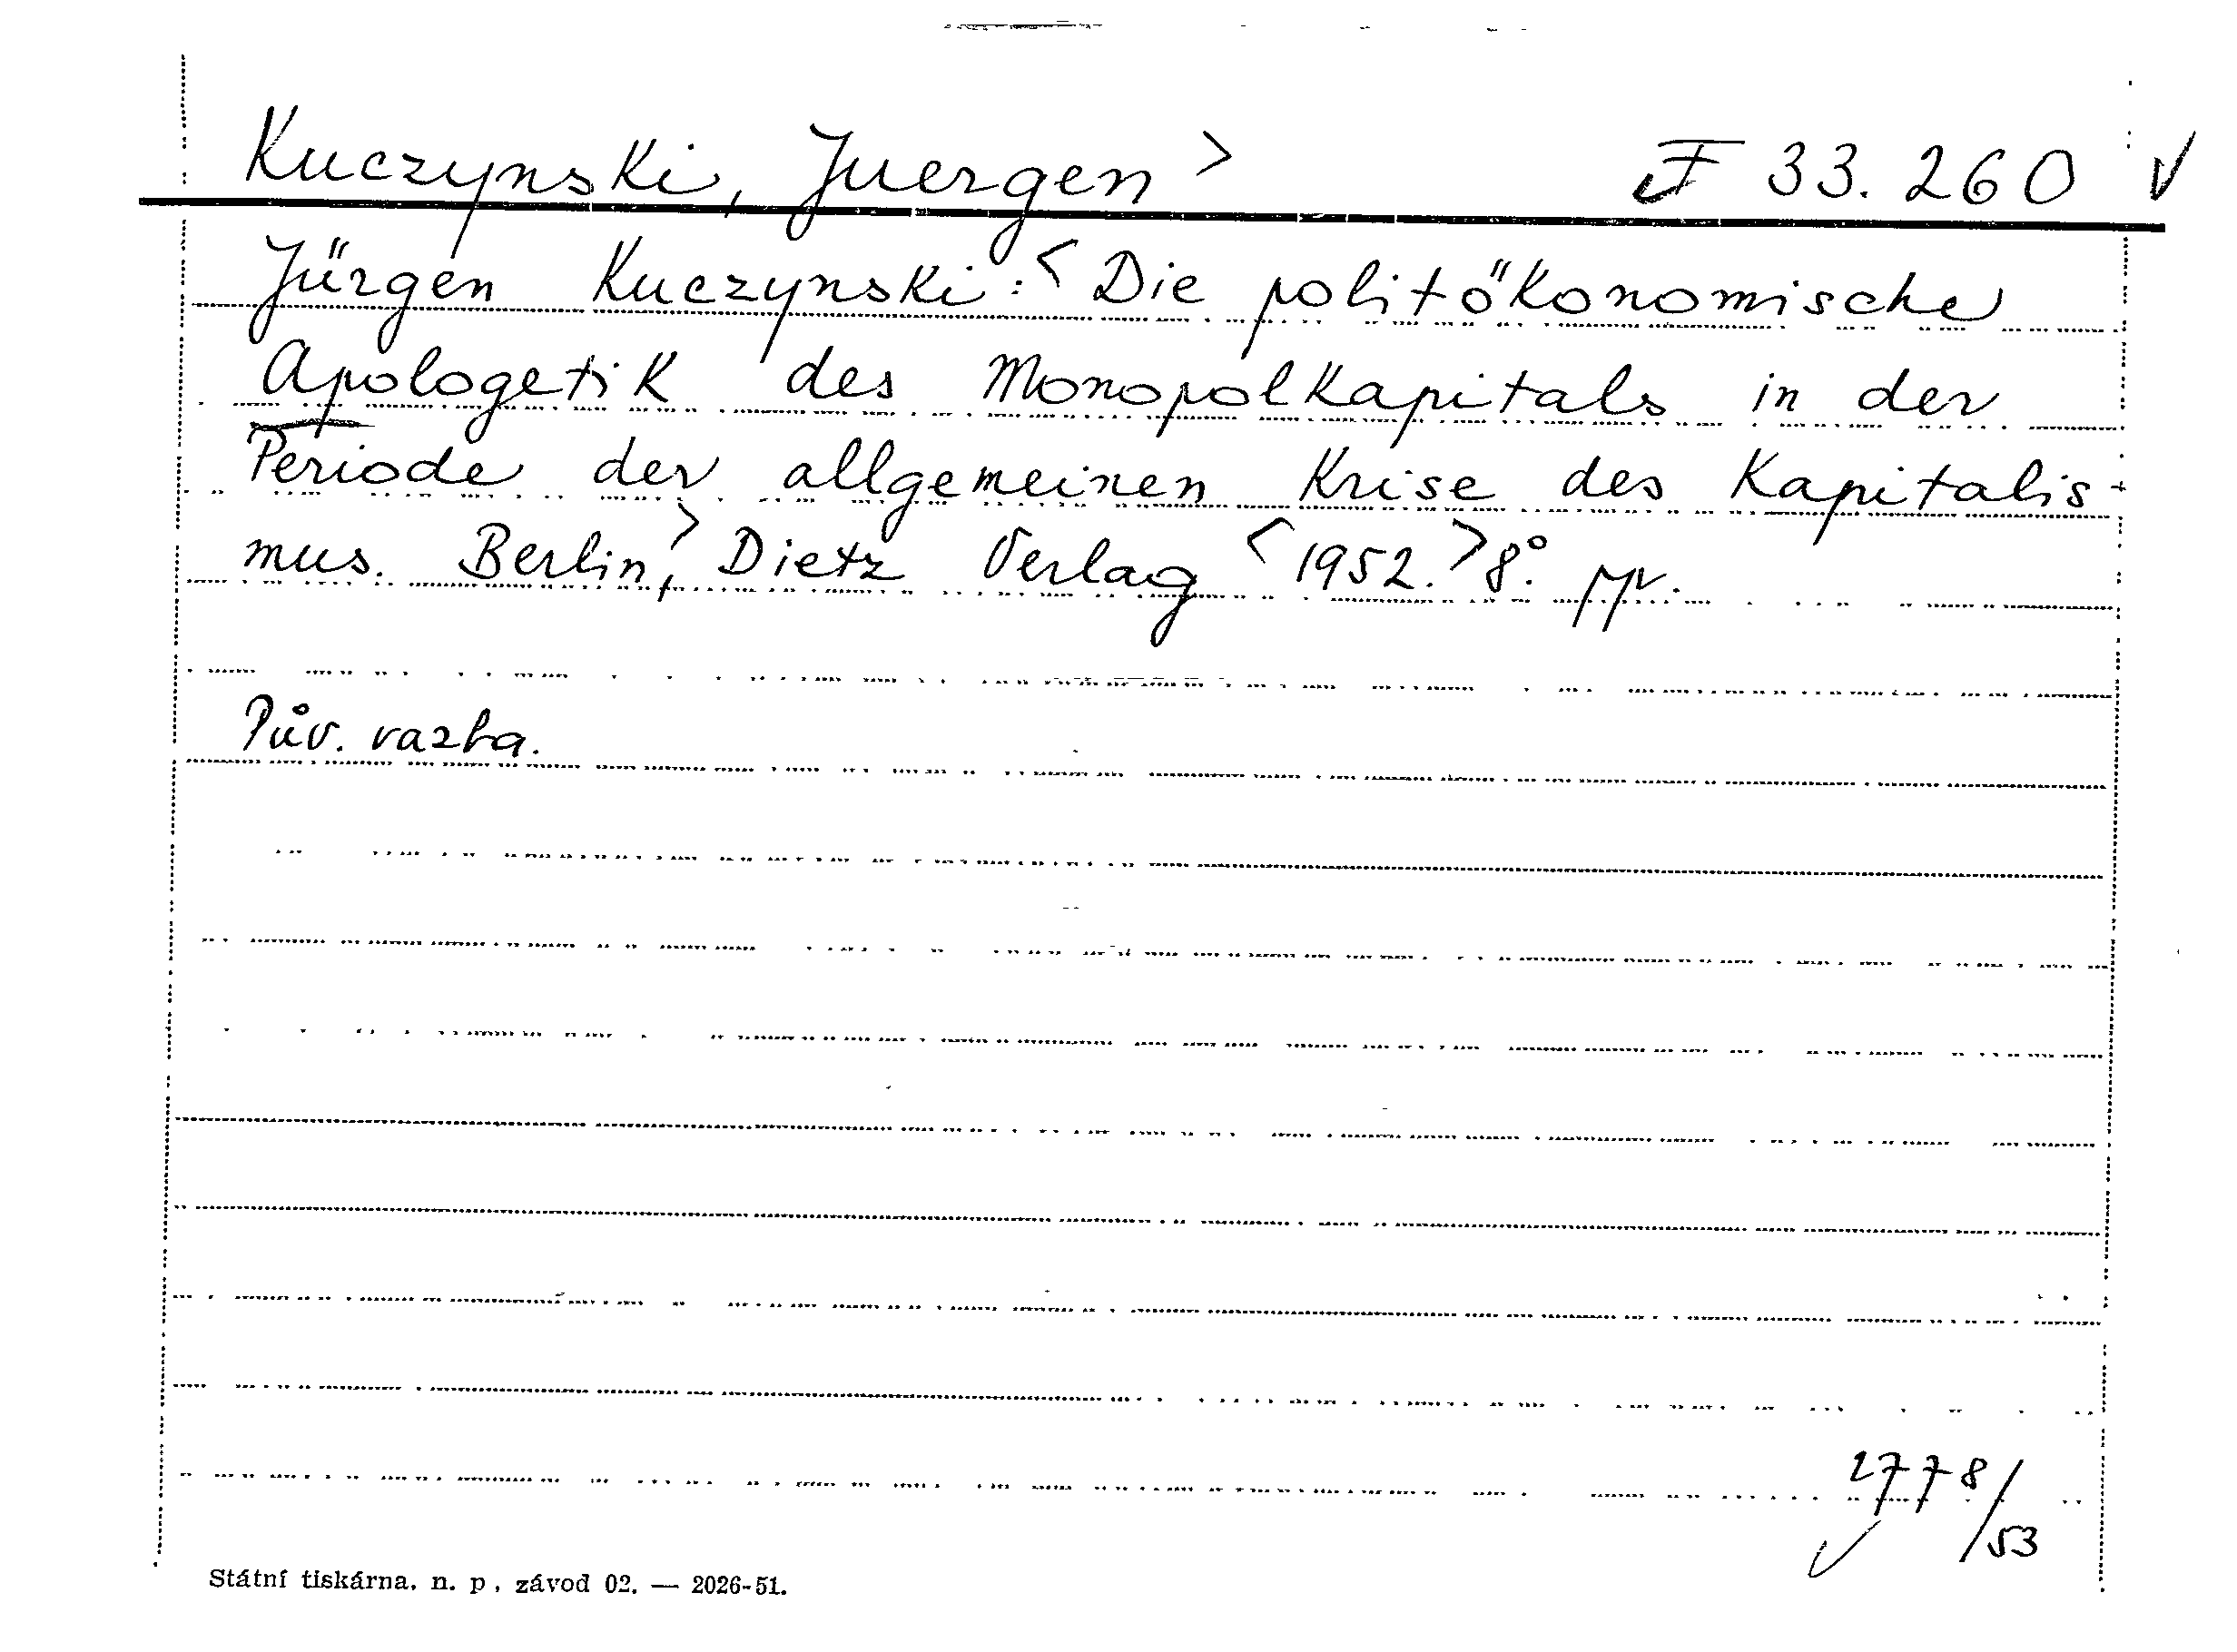 Kuczynski, Juergen > F 33.260 √
Jürgen Kuczynski: < Die politökonomische
Apologetik des Monopolkapitals in der
Periode der allgemeinen Krise des Kapitalis-
mus. Berlin, > Dietz Verlag < 1952. > 8°.
Pův. vazba.
2778/53
Státní tiskárna, n. p., závod 02. — 2026-51.